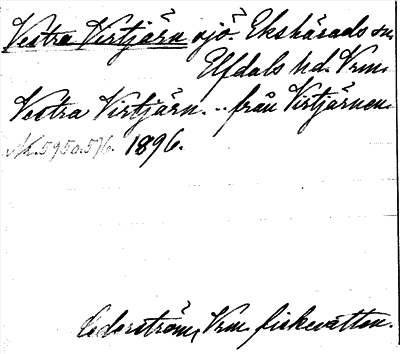 Vestra Virtjärn sjö. Ekshärads sn,
Elfdals hd. Vrm.
Vestra Virtjärn. .. från Virtjärnen.
1896.
Cederström, Vrm. fiskevatten.